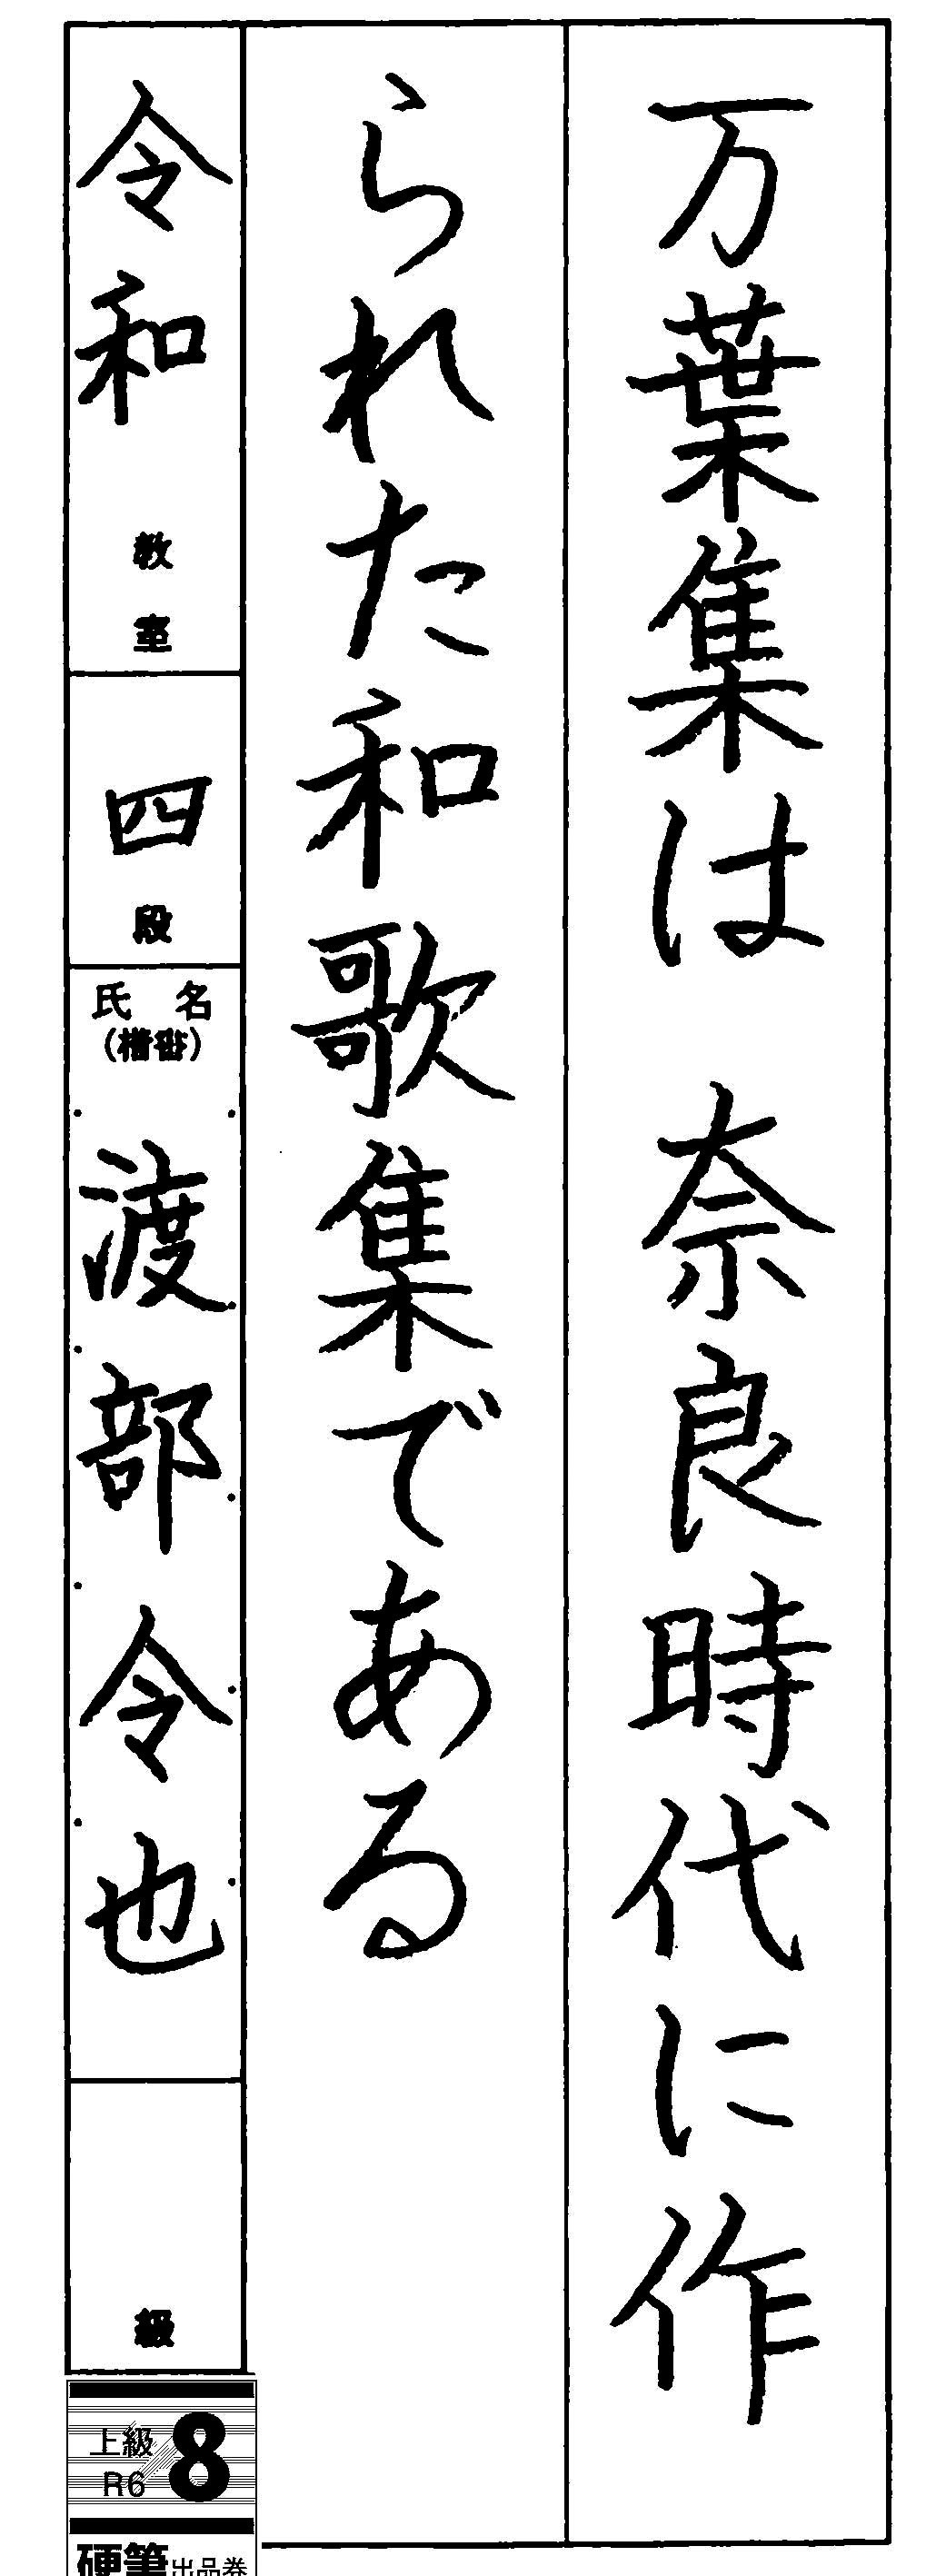 万葉集は 奈良時代に作
られた和歌集である
令和 教室
四 段
氏 名
(楷書)
渡部令也
級
上級
R6
8
硬筆 出品券